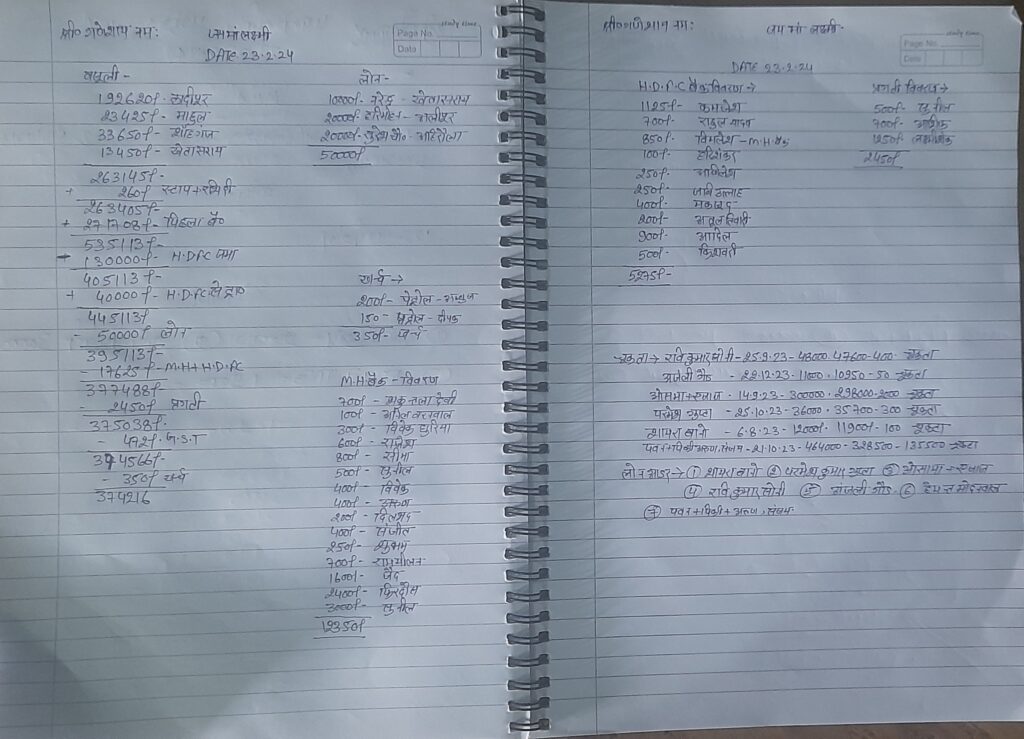 श्री० गणेशाय नमः जय मां लक्ष्मी
Study Time
Page No.
Date
DATE 23.2.24
वसूली -
192620/-
23425/- माहुल
33650/- शाहगंज
13450/- खेतासराय
263145/-
+ 260/-
263405/-
+ 271708/- पिछला बै०
535113/-
130000/- H.D.F.C जमा
405113/-
+ 40000/- H.D.F.C से
445113/-
- 50000/- लोन
395113/-
- 17625/- M.H + H.D.F.C
377488/-
- 2450/- प्रगती
375038/-
- 472/- G.S.T
374566/-
- 350/- खर्च
374216
लोन -
10000/- नरेन्द्र - खेतासराय
20000/-
20000/-
50000/-
खर्च →
200/- पेट्रोल -
150 - पेट्रोल - दीपक
350/- खर्च
M.H बैंक - विवरण
700/- शकुन्तला देवी
100/- अनिल बरनवाल
300/- विवेक
600/- राजेश
800/- सीमा
500/- सुनील
400/- विवेक
400/-
200/- दिलशाद
400/- संजीत
250/- शुभम
700/- राममीलन
1600/- जैद
2400/- फिरदौस
3000/- सुनील
12350/-
श्री० गणेशाय नमः जय मां लक्ष्मी -
Study Time
Page No.
Date
DATE 23.2.24
H.D.F.C बैंक विवरण →
1125/- कमलेश
700/- राहुल यादव
850/- विमलेश - M.H बैंक
100/- हरिशंकर
250/- अखिलेश
250/-
400/-
200/- अतुल तिवारी
900/- आदिल
500/-
5275/-
प्रगती विवरण →
500/- सुनील
700/-
1250/-
2450/-
चुकता → रवि कुमार सोनी - 25.9.23 - 48000 - 47600 - 400 चुकता
अंजली गौड - 22.12.23 - 11000 - 10950 - 50 चुकता
ओसामा + - 14.9.23 - 300000 - 298000 - 2000 चुकता
परमेश गुप्ता - 25.10.23 - 36000 - 35700 - 300 चुकता
शायरा बानो - 6.8.23 - 12000/- 11900/- 100 चुकता
पवन + पिंकी + अरुण, संजय - 21.10.23 - 464000 - 328500 - 135500 चुकता
लोन आडर → ① शायरा बानो ② परमेश कुमार गुप्ता ③ ओसामा +
④ रवि कुमार सोनी ⑤ अंजली गौड ⑥ हेमन्त मोदनवाल
⑦ पवन + पिंकी + अरुण, संजय